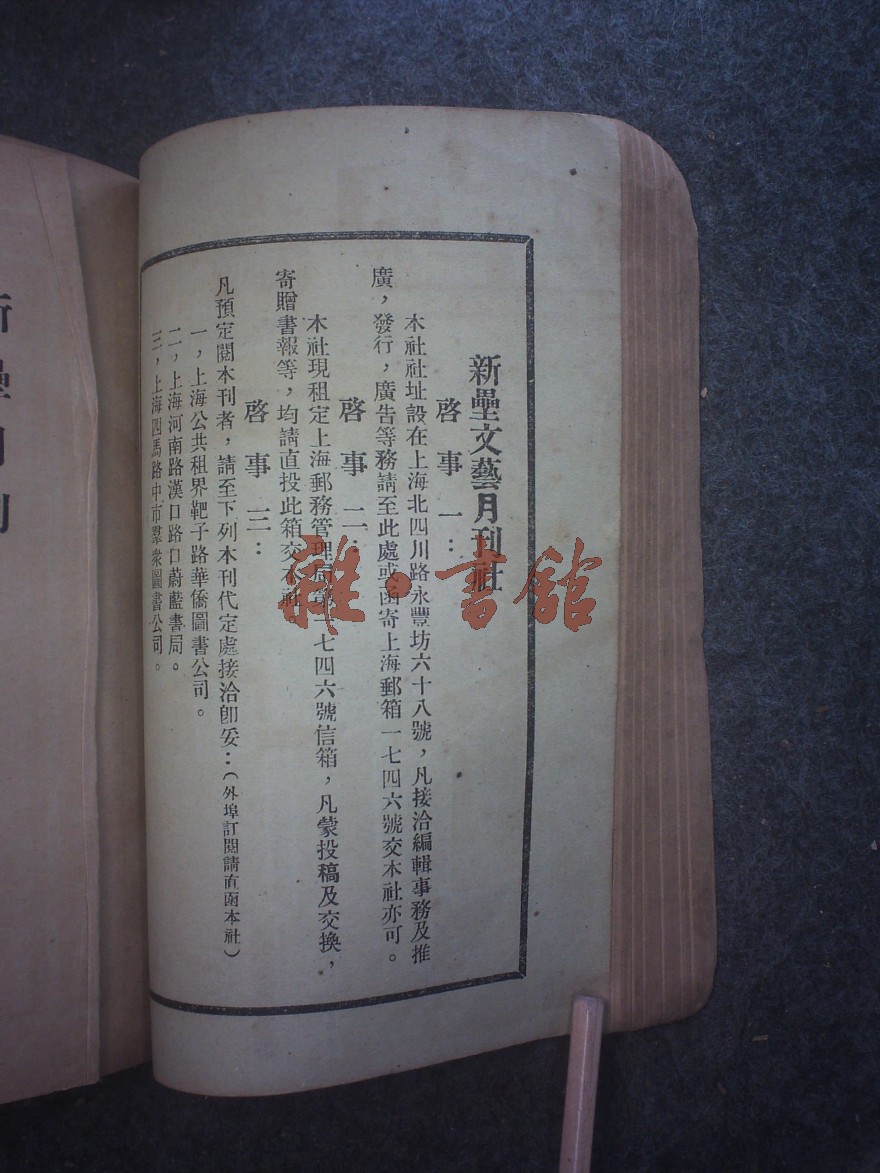 新壘文藝月刊社
啓事一：
本社社址設在上海北四川路永豐坊六十八號，凡接洽編輯事務及推
廣，發行，廣告等務請至此處或函寄上海郵箱一七四六號交本社亦可。
啓事二：
本社現租定上海郵務管理局第一七四六號信箱，凡蒙投稿及交換，
寄贈書報等，均請直投此箱交本社。
啓事三：
凡預定閱本刊者，請至下列本刊代定處接洽卽妥：（外埠訂閱請直函本社）
一，上海公共租界靶子路華僑圖書公司。
二，上海河南路漢口路口蔚藍書局。
三，上海四馬路中市羣衆圖書公司。
雜·書館